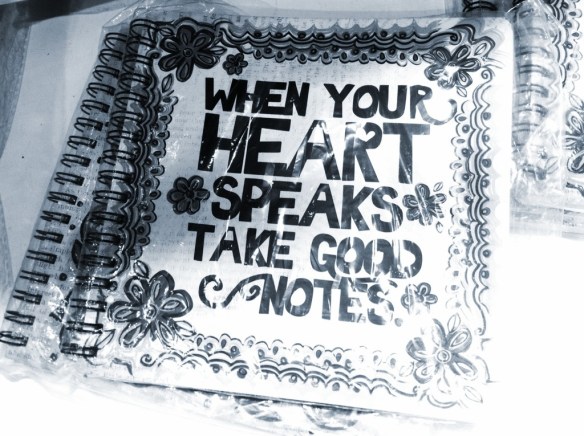 WHEN YOUR
HEART
SPEAKS
TAKE GOOD
NOTES.